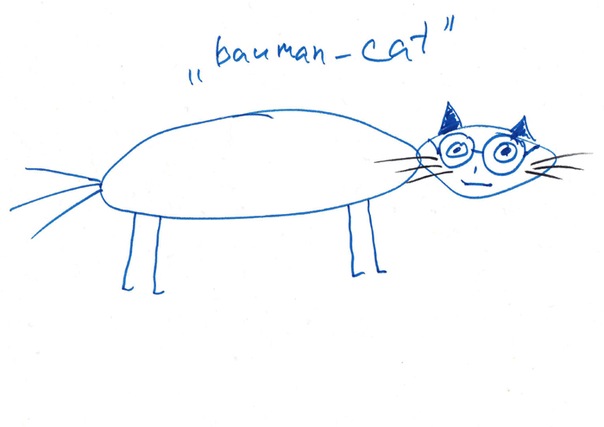 „bauman-cat”